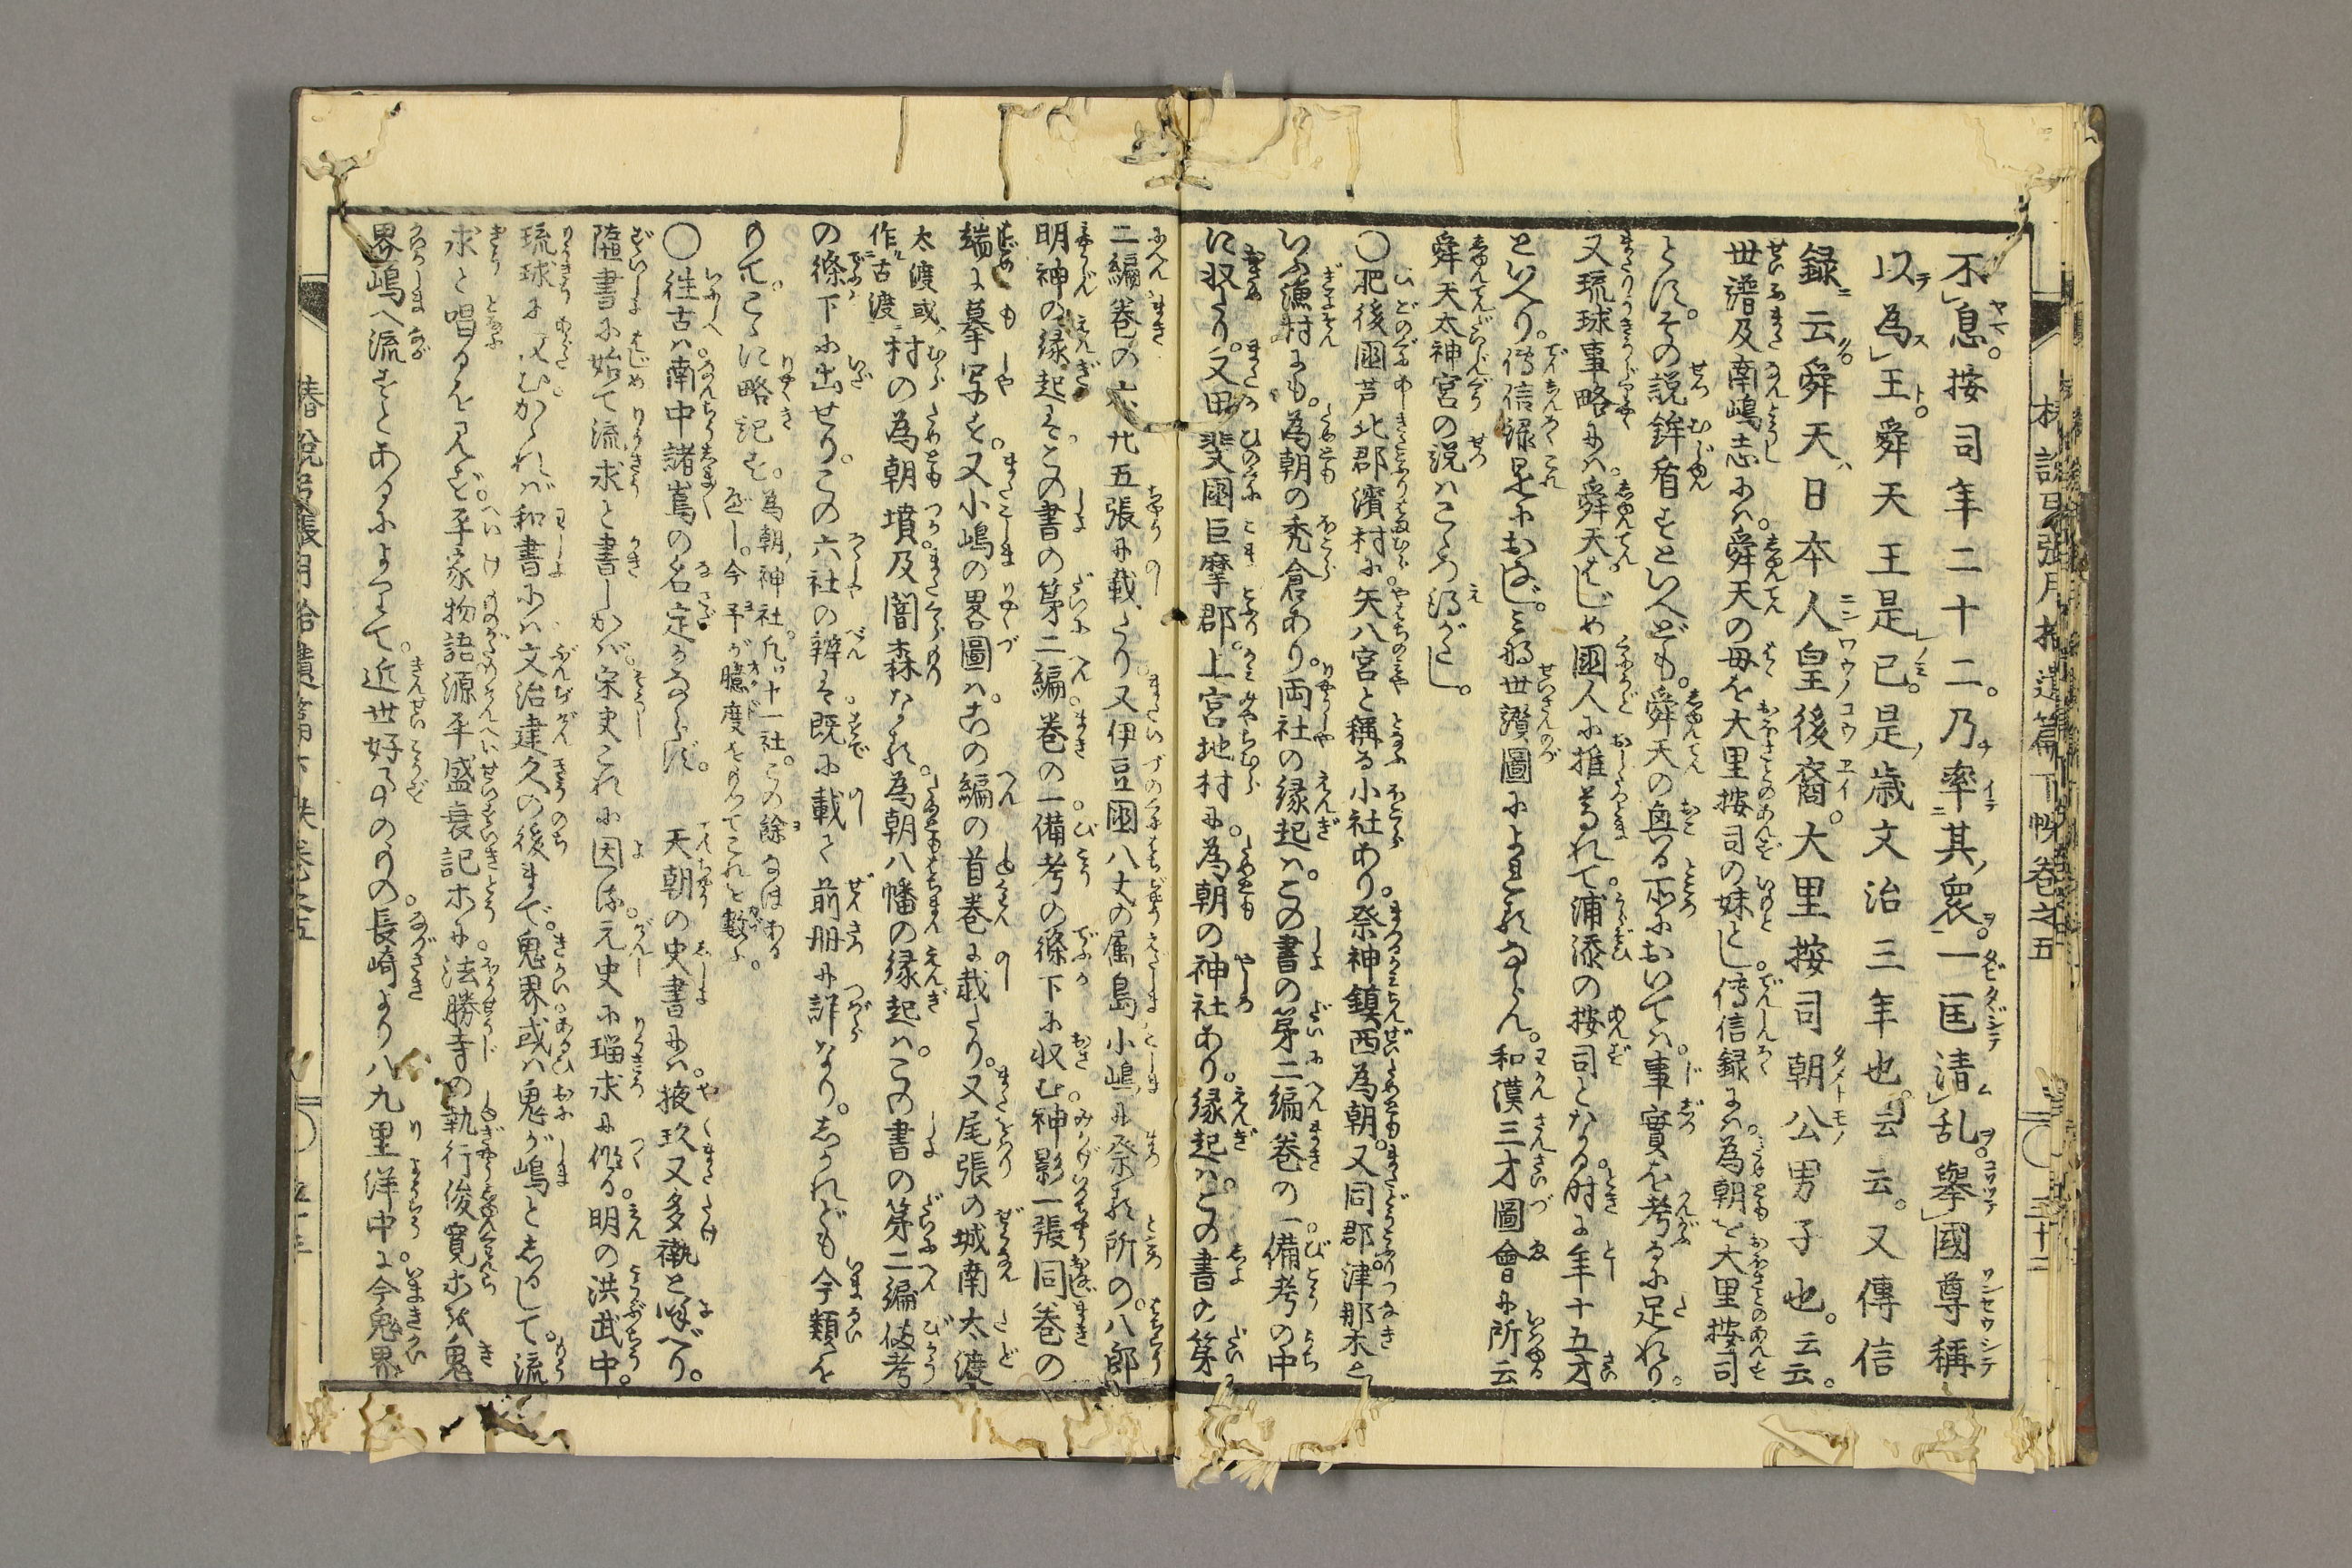 不息。按司年二十二。乃率其衆。一匡清乱。擧國尊稱
以為王。舜天王是已。是歳文治三年也。云云。又傳信
録云舜天日本人皇後裔。大里按司朝公男子也。云云。
世譜及南嶋志にハ。舜天の母を大里按司の妹とし。傳信録にハ。為朝を大里按司
とす。その説鉾盾すといへども。舜天の興る所においてハ。事實を考るに足れり。
又琉球事略にハ。舜天はじめ國人に推尊れて。浦添の按司となる時に年十五才
といへり。傳信録是におなじ。三才世讃圖によれるならん。和漢三才圖會に所云
舜天太神宮の説ハこゝろ得がたし。
○肥後國芦北郡濱村に矢八宮と稱る小社あり。祭神鎮西為朝。又同郡津那木と
いふ漁村にも。為朝の禿倉あり。両社の縁起ハ。この書の第二編巻の一備考の中
に収めたり。又甲斐國巨摩郡。上宮地村に。為朝の神社あり。縁起ハ。この書の第
二編巻の六廿五張に載たり又伊豆國八丈の属島小嶋に祭る所の。八郎
明神の縁起は。この書の第二編巻の一備考の條下に収む。神影一張同巻の
端に摹写す。又小嶋の畧圖ハ。この編の首巻に載たり。又尾張の城南太渡
太渡或作古渡村の為朝墳及闇森なる。為朝八幡の縁起ハ。この書の第二編備考
の條下に出せり。この六社の辨は既に載て前册に詳なり。しかれども今類を
もて。こゝに略記す。為朝神社凡十一社。この餘なほあるべし。今予が臆度をもてこれを數ふ。
○往古ハ南中諸嶌の名定かならず。天朝の史書にハ。掖玖又多褹と呼べり。
隨書に始て流求と書しかば。宋史これに因る。元史に瑠求に作る。明の洪武中。
琉球に改む。かゝれば和書にハ文治建久の後まで。鬼界或ハ鬼が嶋としるして。流
求と唱るを見ず。平家物語源平盛衰記ホに法勝寺の執行俊寛ホを鬼
界嶋へ流すとあるによりて。近世好事のものゝ。長崎より八九里洋中に。今鬼界
椿説弓張月拾遺篇下帙巻之五
三十二
椿説弓張月拾遺篇下帙巻之五